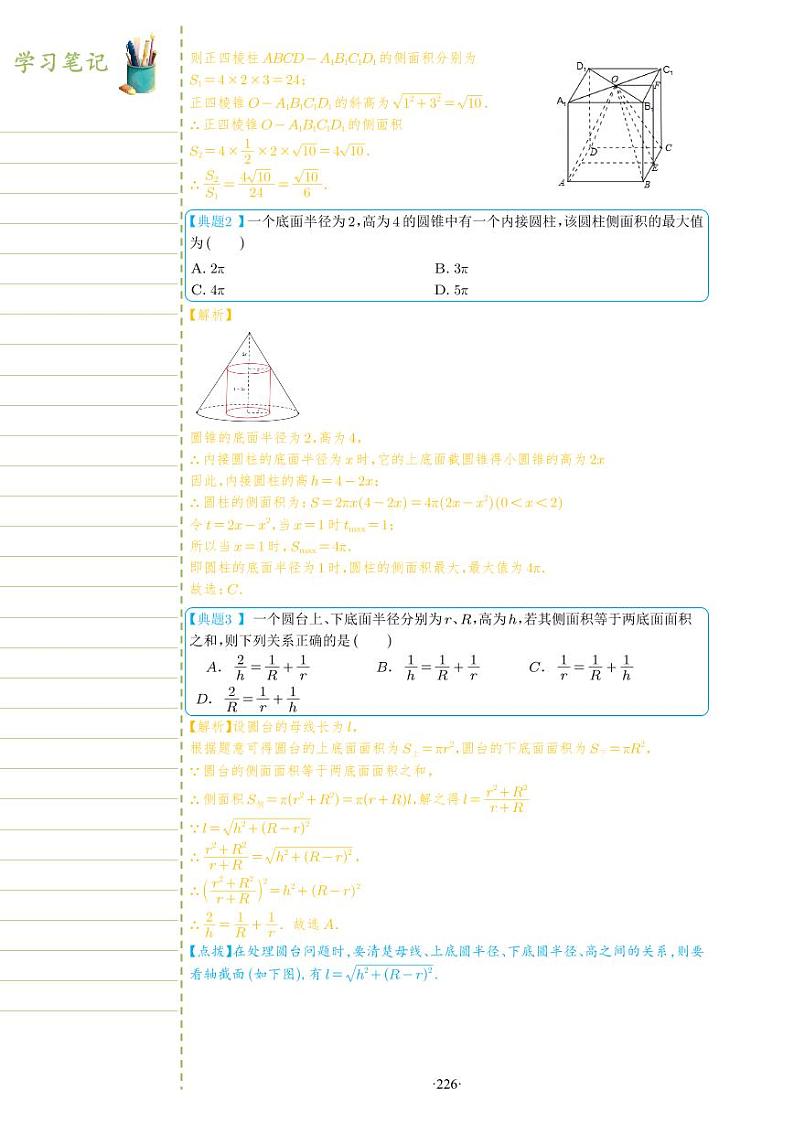 学习笔记
则正四棱柱 ABCD－A₁B₁C₁D₁ 的侧面积分别为
S₁＝4×2×3＝24；
正四棱锥 O－A₁B₁C₁D₁ 的斜高为 √(1²＋3²)＝√10．
∴正四棱锥 O－A₁B₁C₁D₁ 的侧面积
S₂＝4×1/2×2×√10＝4√10．
∴S₂/S₁＝4√10/24＝√10/6．
D₁ C₁ O F A₁ B₁ D C E A B
【典题2 】一个底面半径为2，高为4的圆锥中有一个内接圆柱，该圆柱侧面积的最大值
为（　　）
A. 2π B. 3π
C. 4π D. 5π
【解析】
2x
圆锥的底面半径为2，高为4，
∴内接圆柱的底面半径为x时，它的上底面截圆锥得小圆锥的高为2x
因此，内接圆柱的高h＝4－2x；
∴圆柱的侧面积为：S＝2πx(4－2x)＝4π(2x－x²)(0＜x＜2)
令t＝2x－x²，当x＝1时tmax＝1；
所以当x＝1时，Smax＝4π．
即圆柱的底面半径为1时，圆柱的侧面积最大，最大值为4π．
故选：C．
【典题3 】 一个圆台上、下底面半径分别为r、R，高为h，若其侧面积等于两底面面积
之和，则下列关系正确的是（　　）
A． 2/h＝1/R＋1/r B． 1/h＝1/R＋1/r C． 1/r＝1/R＋1/h
D． 2/R＝1/r＋1/h
【解析】设圆台的母线长为l，
根据题意可得圆台的上底面面积为S上＝πr²，圆台的下底面面积为S下＝πR²，
∵圆台的侧面面积等于两底面面积之和，
∴侧面积S侧＝π(r²＋R²)＝π(r＋R)l，解之得l＝(r²＋R²)/(r＋R)
∵l＝√(h²＋(R－r)²)
∴(r²＋R²)/(r＋R)＝√(h²＋(R－r)²)．
∴((r²＋R²)/(r＋R))²＝h²＋(R－r)²
∴2/h＝1/R＋1/r．故选A．
【点拨】在处理圆台问题时，要清楚母线、上底圆半径、下底圆半径、高之间的关系，则要
看轴截面(如下图)，有l＝√(h²＋(R－r)²)．
·226·